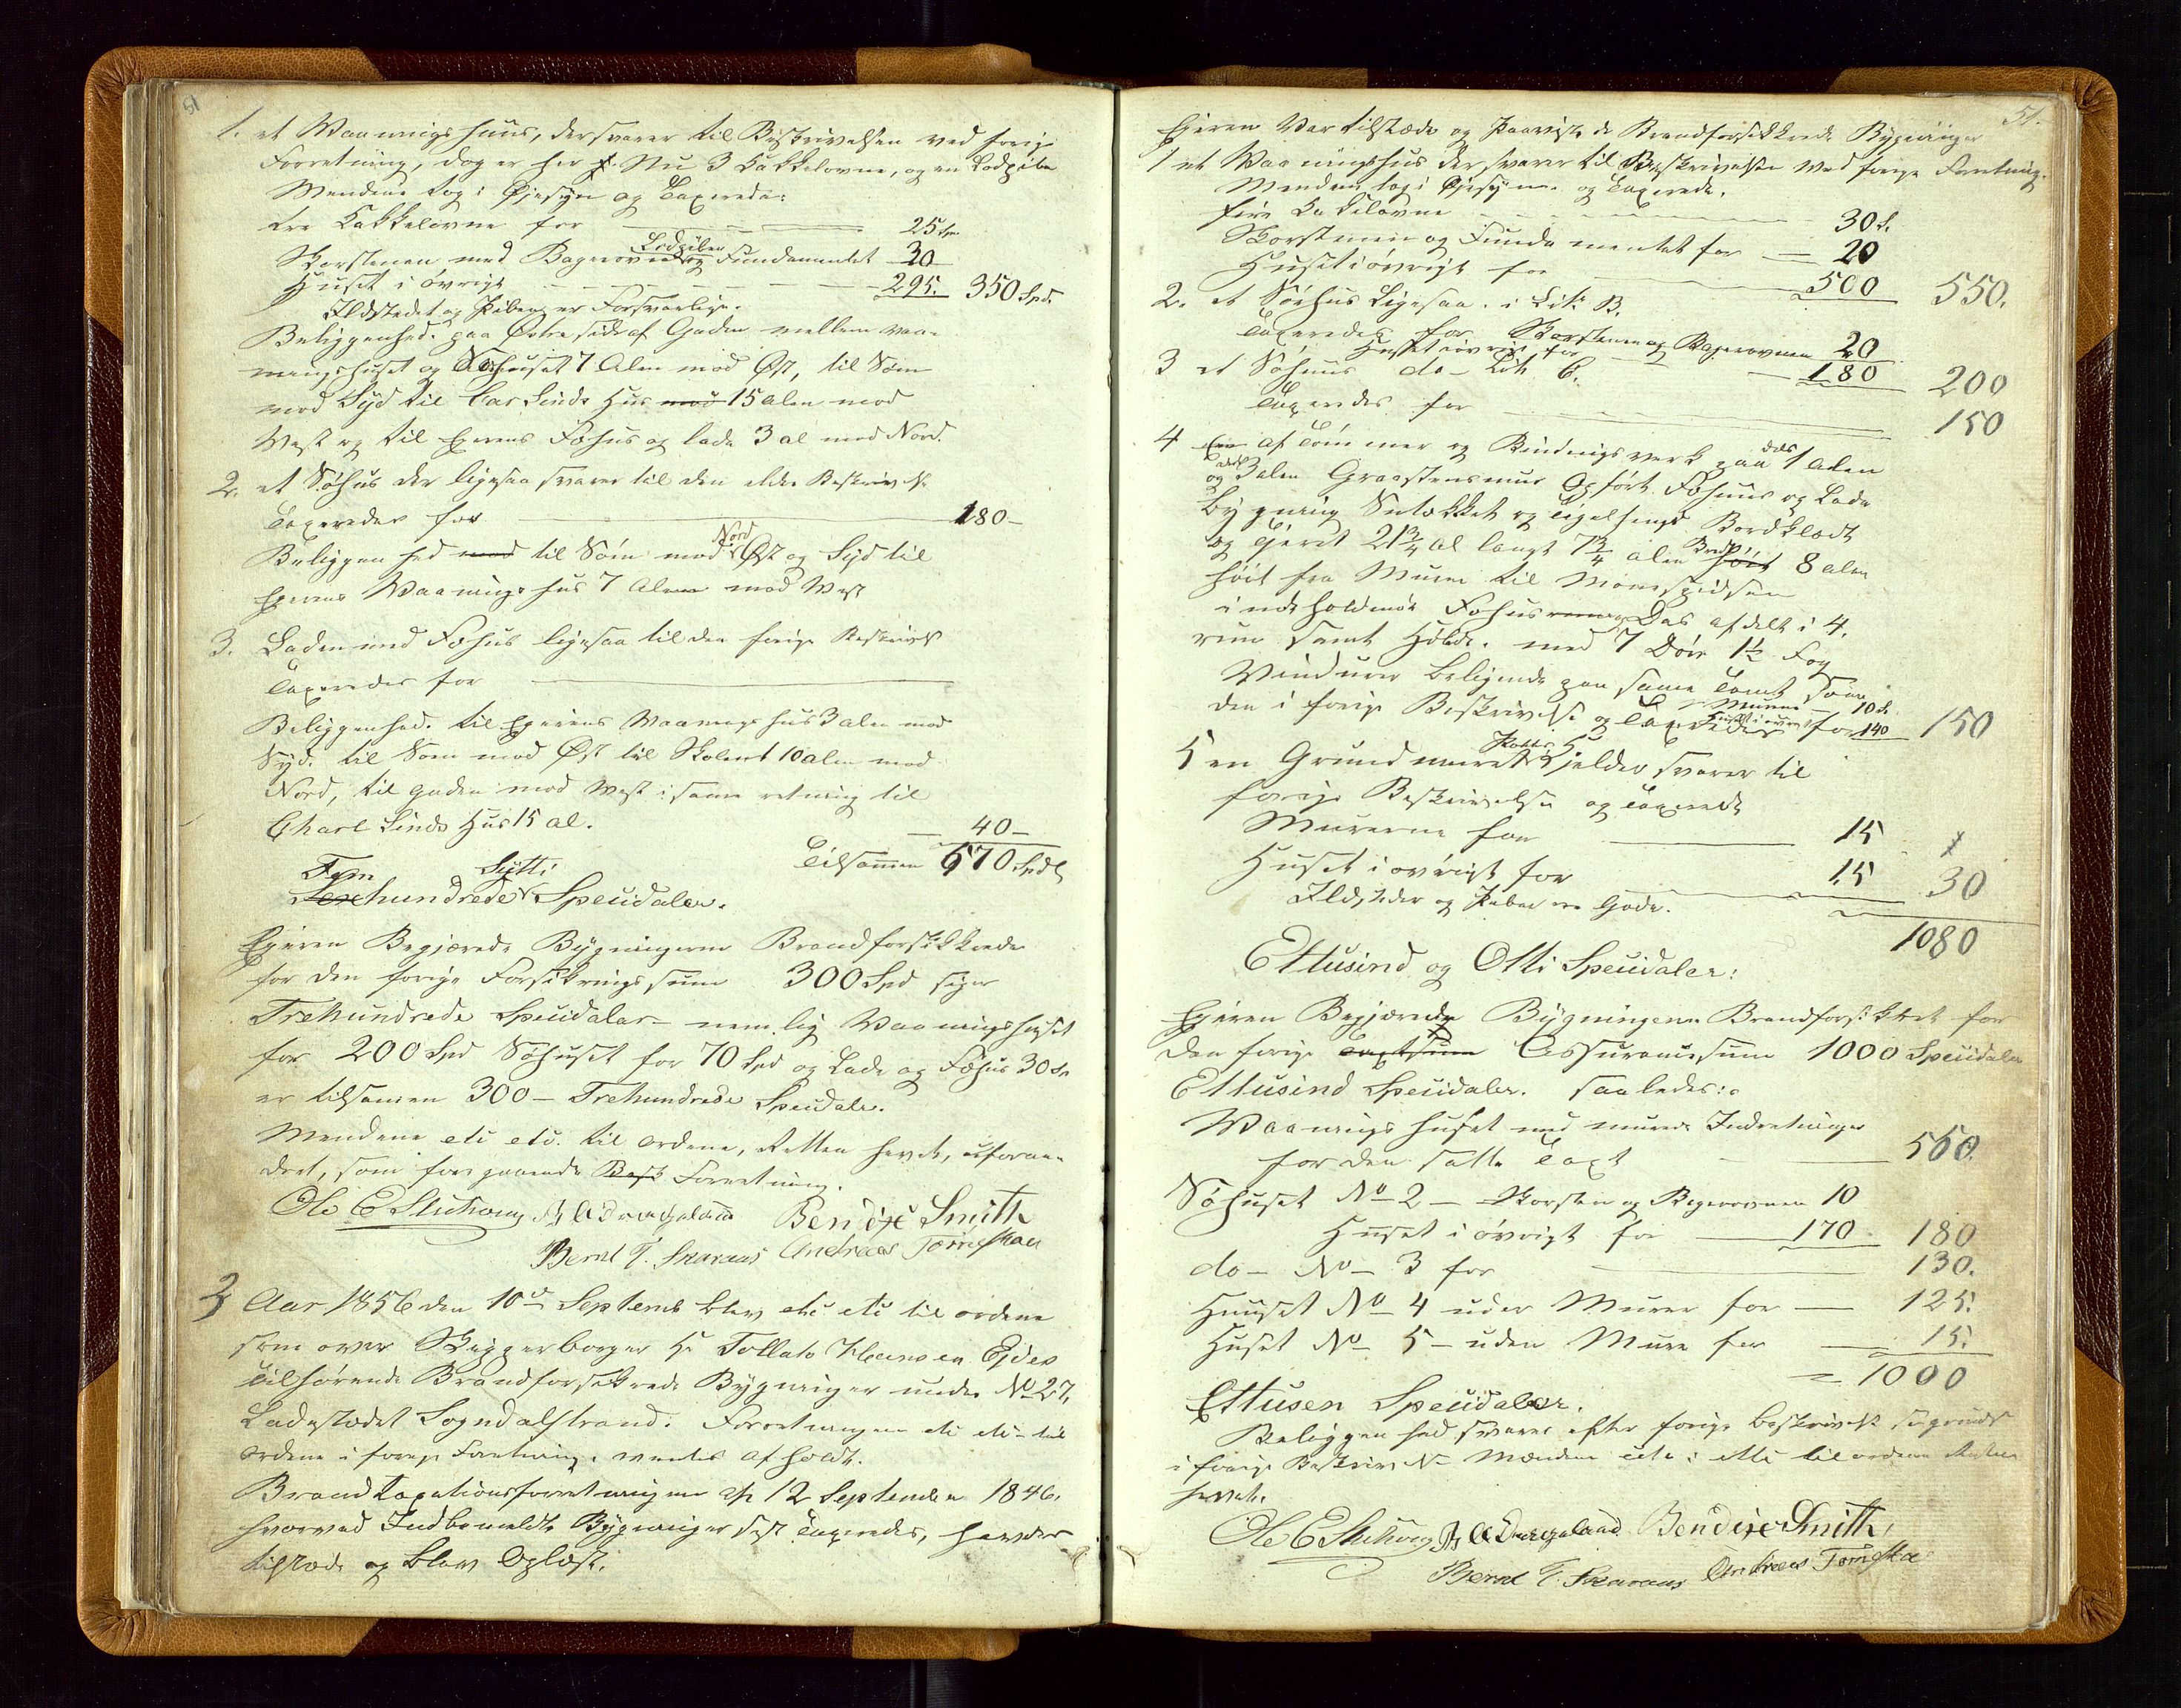 51
1. et Vaaningshuus, der svarer til Beskrivelsen ved forige
Forretning, dog er her Nu 3 Kakkelovne, og en Lodpibe
Mændene tog i Øjesyn og Taxerede:
tre Kakkelovne for 25 Spd
Skorstenen med Bagerovn Lodpiben og Fundamentet 30
Huset i øvrigt 295. 350 Spd.
Ildstedet og Piben er Forsvarlige.
Beliggenhed. paa Østre side af Gaden mellem Vaa-
ningshuset og Søhuset 7 Alen mod Øst, til Søen
mod Syd til Carl Linds Hus 15 alen mod
Vest og til Ejerens Fæhus og lade 3 al mod Nord.
2. et Søhus der ligesaa svarer til den ældre Beskrivelse
Taxeredes for 180 -
Beliggenhed til Søen mod Nord Øst og Syd til
Ejerens Vaaningshus 7 Alen mod Vest
3. Laden med Fæhus ligesaa til den forige Beskrivelse
Taxeredes for
Beliggenhed. til Ejerens Vaaningshus 3 alen mod
Syd. til Søen mod Øst til Skolens 10 alen mod
Nord, til gaden mod Vest i samme retning til
Charl Linds Hus 15 al. 40 -
Tilsammen 570 Spdl
Fem Sytti
hundrede Specidaler.
Ejeren Begjærede Bygningerne Brandforsikkrede
for den forige Forsikringssum 300 Spd siger
Trehundrede Specidaler - nemlig Vaaningshuset
for 200 Spd Søhuset for 70 Spd og Lade og Fæhus 30 Sp
er tilsamen 300 - Trehundrede Specidaler.
Mændene etc etc. til ordene, Retten hævet, uforan-
dret, som foregaaende Forretning.
Ole E Bendixe Smith
Bernt T. Skaraas Andreas Tørresen
3 Aar 1856 den 10de Septemb blev etc etc til ordene
som over Skipperborger H. Tollak Hansen Eides
tilhørende Brandforsikrede Bygninger under No 27,
Ladestædet Sogndalstrand. Forretningen etc etc til
ordene i forige Forretning, afholdt.
Brandtaxationsforretningen af 12 September 1846.
hvorved Indbemeldte Bygninger sidst Taxeredes, havdes
tilstede og blev Oplæst.
51.
Ejeren Var tilstæde og Paaviste de Brandforsikkrede Bygninger
1 et Vaaningshus der svarer til Beskrivelsen ved forige Forretning.
Mændene tog i Øjesyn og Taxerede.
fire Kakelovne 30 S.
Skorstenen og Fundamentet for 20
Huset i øvrigt for 500 550.
2. et Søehus Ligesaa i Litr B.
Taxeredes for Skorstenen og Bagerovnen 20
Huset i øvrigt for 180 200
3 et Søhuus do - Litr C.
Taxeredes for 150
4 af Tømmer og Bindingsverk paa deels 1 alen
og deels 3 alen Graastensmur Opført Fæhuus og Lade
bygning Sutækket og Tegelhengt Bordklædt
og 21 3/4 al langt 7 3/4 alen Bredt 8 alen
høit fra Muren til Mønespidsen
indeholdende Fæhus afdelt i 4.
rum samt med 7 Døre 1 1/2 Fag
Vinduer beligende paa samme Tomt som
den i forige Beskrivelse og Taxeredes Murene 10 S.
for 140 150
5 en Grundmuret Kjelder svarer til
forige Beskrivelse og Taxeredt
Murerne for 15
Huset i øvrigt for 15 30
Ildsteder og Piber ere Gode.
1080
Ettusind og Otti Speciidaler:
Ejeren Begjærede Bygningerne Brandforsikkret for
den forige Assurancesum 1000 Speciidaler
Ettusind Speciidaler. saaledes:
Vaaningshuset med murede Indretninger
for den satte Taxt 550.
Søhuset No 2 - Skorsten og Bagerovnen 10
Huset i øvrigt for 170 180
do - No - 3 for 130.
Huuset No 4 uden Murer for 125.
Huset No 5 - uden Mure for 15.
= 1000
Ettusen Speciidaler.
Beliggenhed svarer efter forige beskrivelse
i forige Beskrivelse Mændene etc: etc til ordene Retten
hævet.
Ole E Bendixe Smith,
Bernt T. Skaraas Andreas